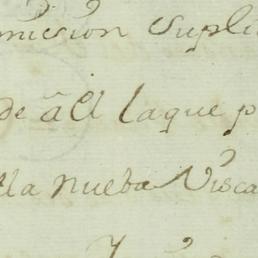 mision supli
de aél la que p
lla nueba Visca